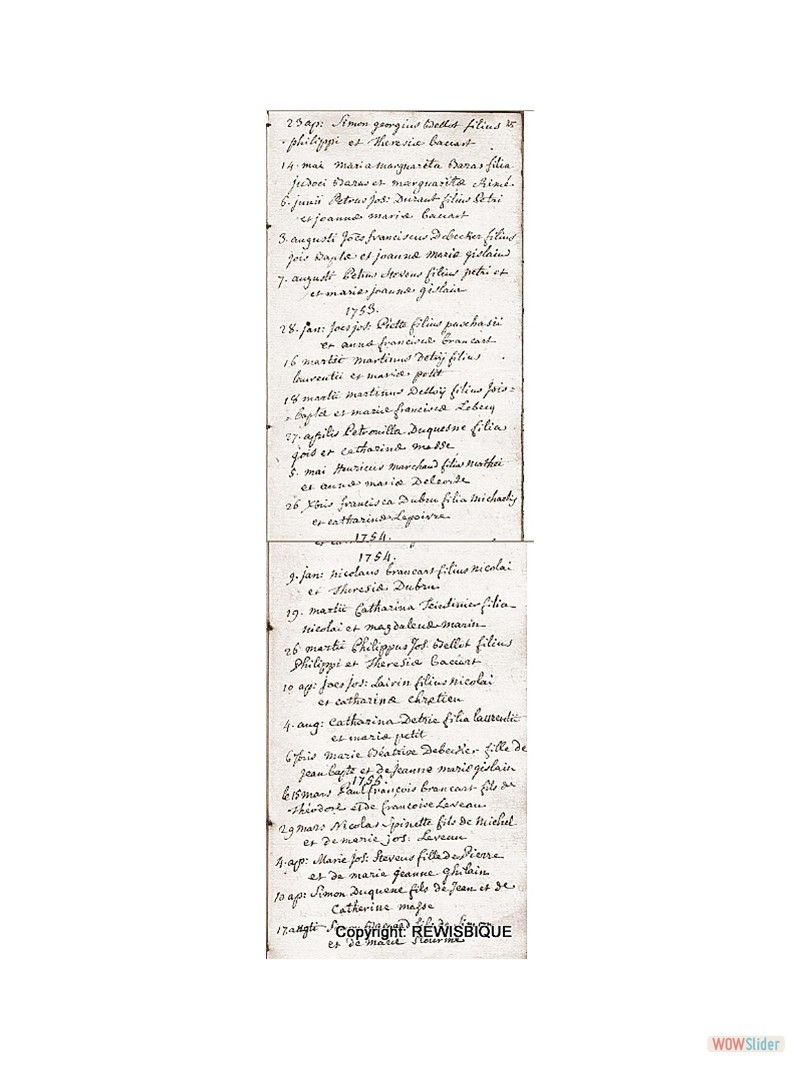 23 ap: Simon georgius Wellot filius
philippi et Theresiæ bauart
14. mai maria marguarita Baras filia
judoci Baras et marguaritæ
6. junii Petrus jos: Durant filius Petri
et joannæ mariæ bauart
3. augusti joēs franciscus Debecker filius
jois baptæ et joannæ mariæ gislain
7. augusti Petrus Stevens filius petri et
et mariæ joannæ gislain
1753.
28. jan: joes jos: Piette filius paschasii
et annæ franciscæ brancart
16 martii martinus Detrij filius
laurentii et mariæ petit
18 martii martinus filius jois=
baptæ et mariæ franciscæ Lebecq
27. aprilis Petronilla Duquesne filia
jois et catharinæ masse
5. mai Henricus marchand filius mathei
et annæ mariæ
26 Xbris francisca Dubru filia michaelis
et catharinæ Lepoivre
1754.
1754.
9. jan: nicolaus brancart filius nicolai
et Theresiæ Dubru
19. martii Catharina filia
nicolai et magdalenæ marin
26 martii Philippus jos: Wellot filius
Philippi et Theresiæ bauart
10 ap: joes jos: Lairin filius nicolai
et catharinæ chretien
4. aug: Catharina Detrie filia laurentii
et mariæ petit
6 7bris Marie Béatrixe fille de
jean bapte et de jeanne marie gislain
1755.
le 15 mars Paul françois brancart fils de
Théodore et de francoise Leveau
29 mars Nicolas Spinette fils de Michel
et de marie jos: Leveau
4. ap: Marie jos: Stevens fille de Pierre
et de marie jeanne ghilain
10 ap: Simon Duquene fils de jean et de
Catherine masse
17. augti fils de Simon
et de marie
Copyright: REWISBIQUE
WOWSlider